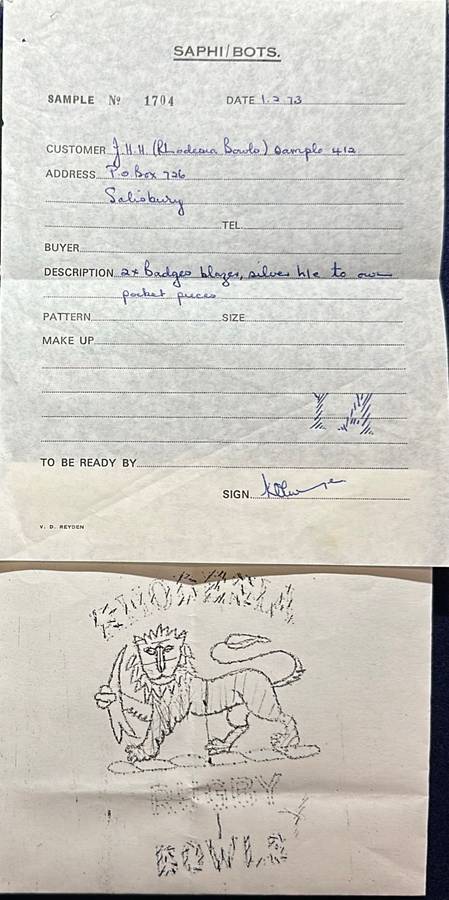 SAPHI/BOTS.
SAMPLE No 1704 DATE 1.2.73
CUSTOMER J.H.H (Rhodesia Bowls) Sample 412
ADDRESS P.O Box 726
Salisbury
TEL.
BUYER
DESCRIPTION 2x Badges blazer, silver h/e to own
pocket pieces
PATTERN SIZE
MAKE UP
TO BE READY BY
SIGN.
V. D. REYDEN
RHODESIA
RUGBY
BOWLS